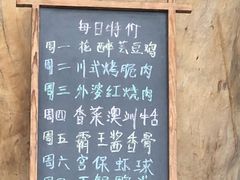 每日特价
周一 花醉芸豆鸡
周二 川式烤脆肉
周三 外婆红烧肉
周四 香菜澳洲牛
周五 霸王酱香骨
周六 宫保虾球